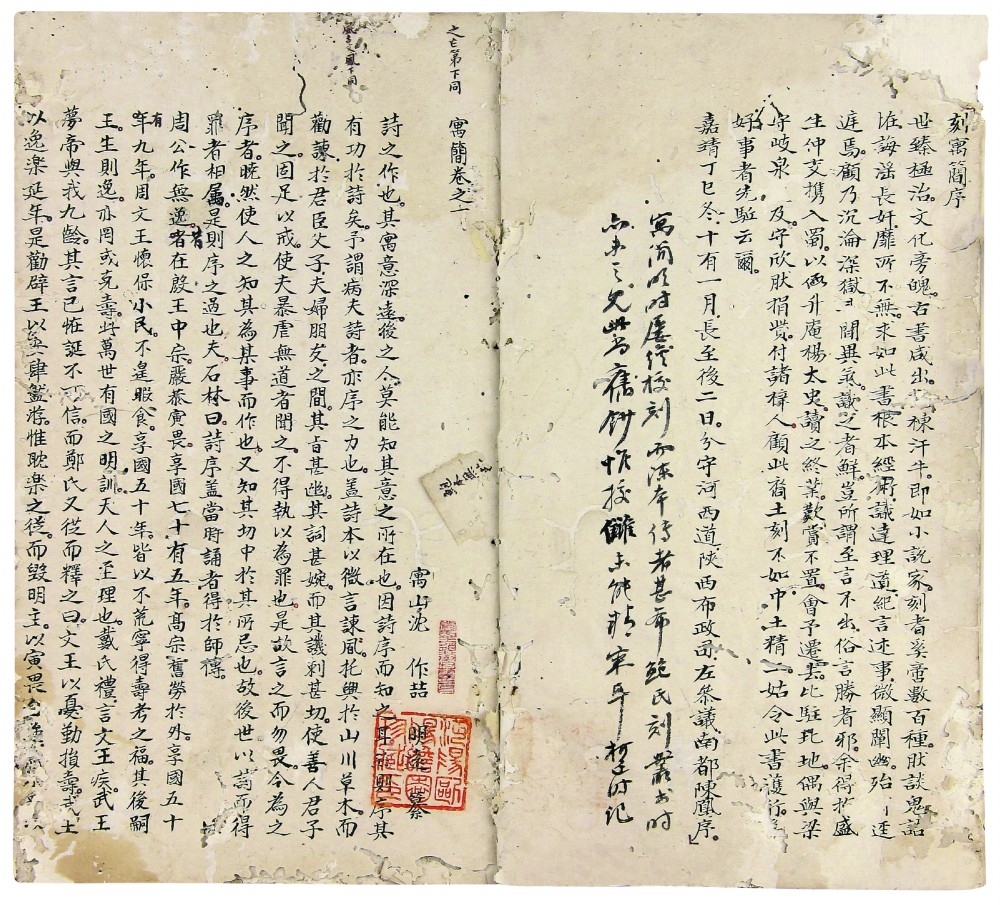 刻寓簡序
世臻極治。文化旁魄。古書咸出。棟汗牛。即如小說家刻者奚啻數百種。狀談鬼語
誨謡長奸。靡所不無。求如此書根本經術。議達理道。紀言述事。微顯闡幽。殆
焉。顧乃沉淪深獄。聞異矣。識之者鮮。豈所謂至言不出。俗言勝者邪。余得于盛
生仲支。携入蜀。以函升庵楊太史。讀之終業。歎賞不置。會予遷去。比駐此地。偶與梁
守岐泉 及。守欣肰捐貲。付諸梓人。顧此西土刻不如中土精工。姑令此書護行
好事者先駈云爾。
嘉靖丁巳冬。十有一月。長至後二日。分守河西道。陝西布政司。左叅議南都陳鳳序。
寓簡明時屢經校刻而流本傳者甚希鮑氏刻叢書時
亦未之見此當舊鈔惜校讎未能精审耳 時記
之七第下同
寓簡卷之一
寓山沈 作喆
明遠 纂
詩之作也。其寓意深遠。後之人莫能知其意之所在也。因詩序而知之耳。然則序其
有功於詩矣。予謂病夫詩者。亦序之力也。盖詩本以微言諫風。托興於山川草木。而
勸諫於君臣父子夫婦朋友之間。其旨甚幽。其詞甚婉。而其譏刺甚切。使善人君子
聞之。固足以戒。使夫暴虐無道者聞之。不得執以為罪也。是故言之而勿畏。今為之
序者。曉然使人之知其為某事而作也。又知其切中於其所忌也。故後世以詩而得
罪者相属。是則序之過也夫。石林曰。詩序盖當時誦者得於師傳。
周公作無逸。者昔在殷王中宗。嚴恭寅畏。享國七十有五年。髙宗舊勞於外。享國五十
有年九年。周文王懷保小民。不遑暇食。享國五十年。皆以不荒寧得壽考之福。其後嗣
王。生則逸。亦罔或克壽。此萬世有國之明訓。天人之至理也。戴氏禮。言文王疾。武王
夢帝與我九齡。其言已恠誕不可信。而鄭氏又從而釋之曰。文王以憂勤損壽。武王
以逸楽延年。是勸辟王以肆盤游。惟耽楽之從。而毀明主。以寅畏